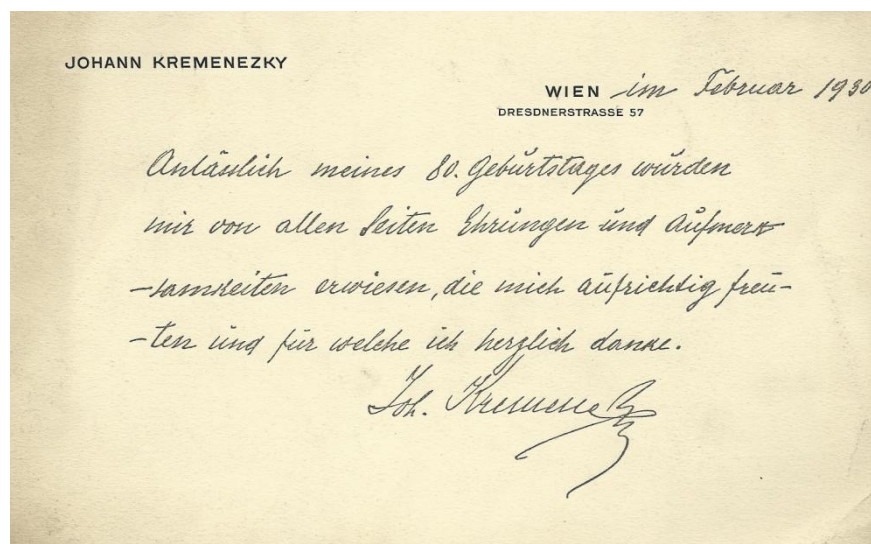 JOHANN KREMENEZKY
WIEN im Februar 1930
DRESDNERSTRASSE 57
Anlässlich meines 80. Geburtstages wurden
mir von allen Seiten Ehrungen und Aufmerk
-samkeiten erwiesen, die mich aufrichtig freu-
-ten und für welche ich herzlich danke.
Joh. Kremenezky